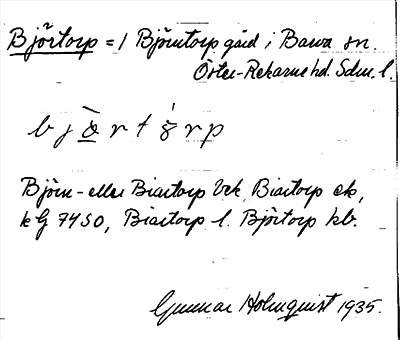 Björtorp = 1 Björntorp gård i Barva sn.
Öster-Rekarne hd. Sdm. l.
Björn- eller Biartorp Gek, Biartorp ek,
kG 7450, Biartorp l. Björtorp kb.
Gunnar Holmquist 1935.